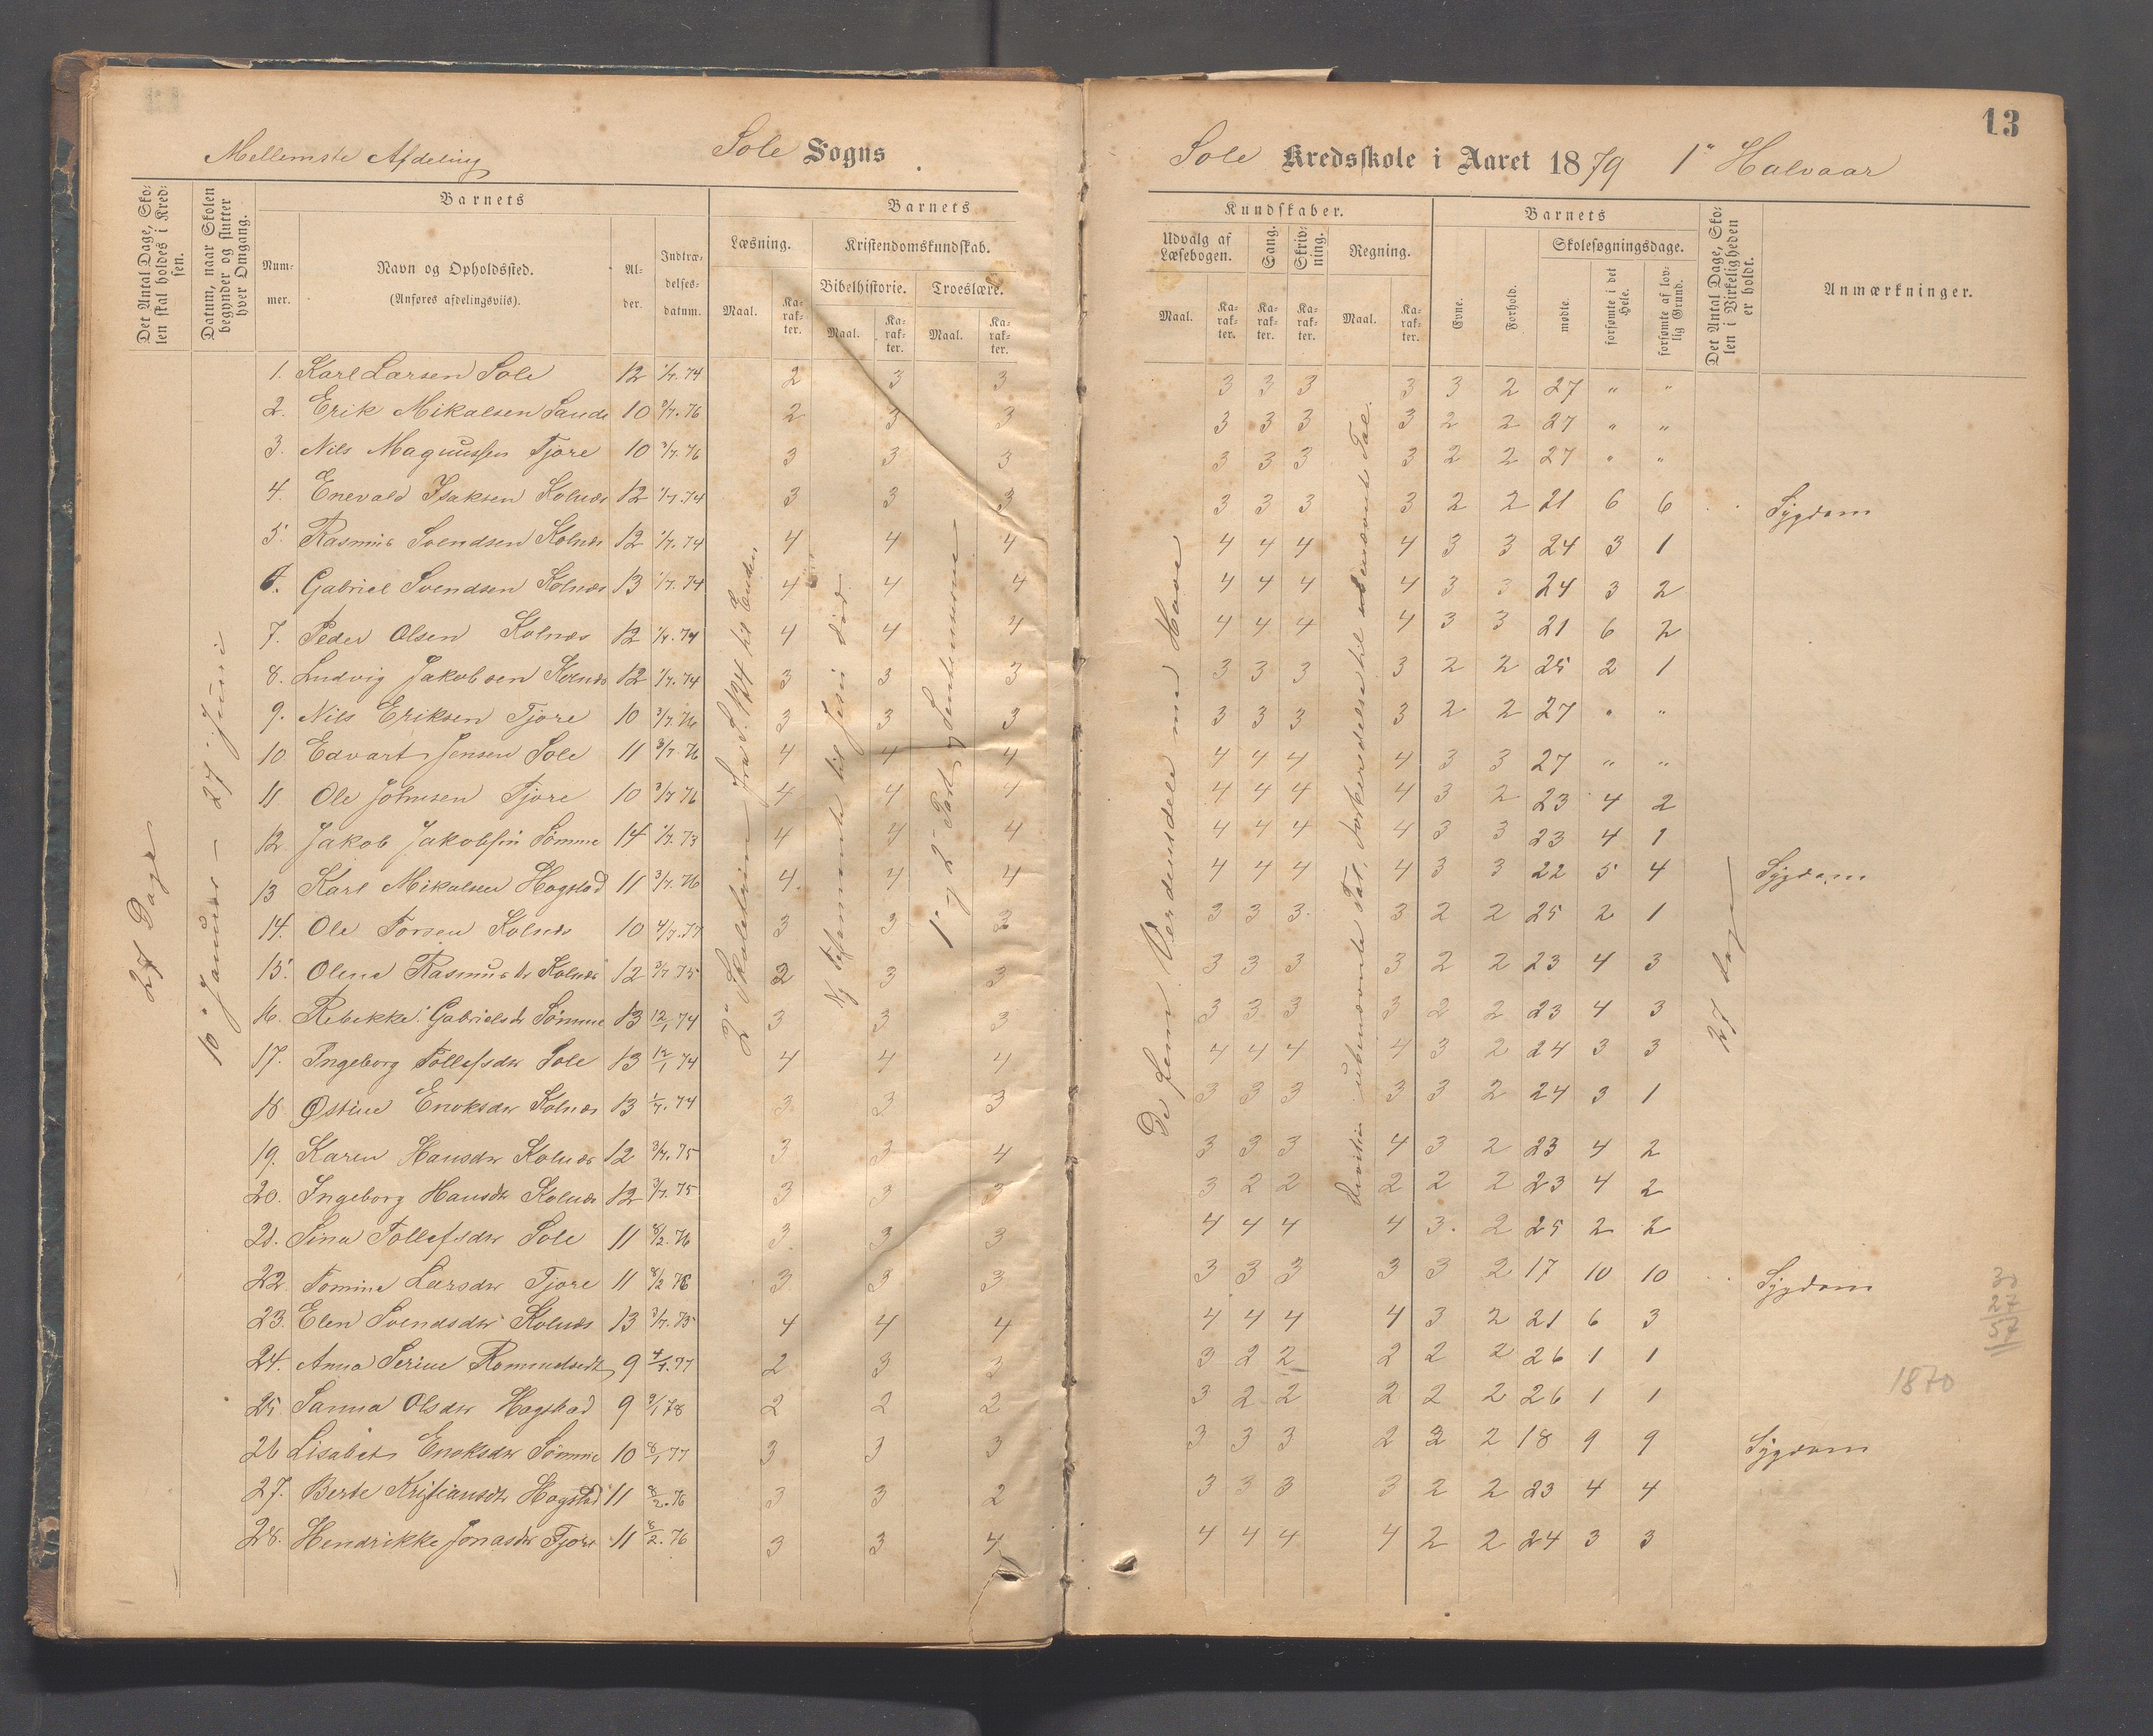 13
Mellemste Afdeling Sole Sogns Sole Kredsskole i Aaret 1879 1ste Halvaar
Det Antal Dage, Skolen skal holdes i Kredsen.
Datum, naar Skolen begynder og slutter hver Omgang.
Barnets
Nummer.
Navn og Opholdssted.
(Anføres afdelingsviis).
Alder.
Indtrædelsesdatum.
Barnets Kundskaber.
Læsning.
Maal. Karakter.
Kristendomskundskab.
Bibelhistorie. Troeslære.
Maal. Karakter. Maal. Karakter.
Udvalg af Læsebogen. Sang. Skrivning. Regning.
Maal. Karakter. Karakter. Karakter. Maal. Karakter.
Barnets
Evne. Forhold. Skolesøgningsdage.
mødte forsømte i det Hele. forsømte af lovlig Grund.
Det Antal Dage, Skolen i Virkeligheden er holdt.
Anmærkninger.
27 Dage
10 Januar – 27 Juni
2den Skoletrin fra S. 124 til Enden
Ny Testamente til Jesu Død
1ste og 2den Part og Sentenserne
De fem Verdensdele med Have
Division ubenævnte Tal, forkersdelse til ubenævnte Tal.
27 dage
1. Karl Larsen Sole 12 1/7.74 2 3 3 3 3 3 3 3 2 27 " "
2. Erik Mikalsen Sande 10 3/7.76 2 3 3 3 3 3 3 2 2 27 " "
3. Nils Magnussen Tjore 10 3/7.76 3 3 3 3 3 3 3 2 2 27 " "
4. Enevald Isaksen Kolnes 12 1/7.74 3 3 3 3 3 3 3 2 2 21 6 6 Sygdom
5. Rasmus Svendsen Kolnes 12 1/7.74 4 4 4 4 4 4 4 3 3 24 3 1
6. Gabriel Svendsen Kolnes 13 1/7.74 4 4 4 4 4 4 4 3 3 24 3 2
7. Peder Olsen Kolnes 12 1/7.74 4 4 4 4 4 4 4 3 3 21 6 2
8. Ludvig Jakobsen Kolnes 12 1/7.74 3 3 3 3 3 3 3 2 2 25 2 1
9. Nils Eriksen Tjore 10 3/7.76 3 3 3 3 3 3 3 2 2 27 " "
10 Edvart Jensen Sole 11 3/7.76 4 4 4 4 4 4 4 3 3 27 " "
11 Ole Johnsen Tjore 10 3/7 76 4 4 4 4 4 4 4 3 2 23 4 2
12. Jakob Jakobsen Sømme 14 1/7.73 4 4 4 4 4 4 4 3 3 23 4 1
13 Karl Mikalsen Hogstad 11 3/7.76 4 4 4 4 4 4 4 3 3 22 5 4 Sygdom
14. Ole Torsen Kolnes 10 4/7.77 3 3 3 3 3 3 3 2 2 25 2 1
15. Olene Rasmusdr Kolnes 12 3/7 75 2 3 3 3 3 3 3 2 2 23 4 3
16. Rebekke Gabrielsdr Sømme 13 12/1 74 3 3 3 3 3 3 3 2 2 23 4 3
17. Ingeborg Tollefsdr Sole 13 12/1 74 4 4 4 4 4 4 4 3 2 24 3 3
18 Østine Enoksdr Kolnes 13 1/7.74 3 3 3 3 3 3 3 3 2 24 3 1
19. Karen Hansdr Kolnes 12 3/7.75 3 3 4 3 3 3 4 3 2 23 4 2
20. Ingeborg Hansdr Kolnes 12 3/7.75 3 3 3 3 2 2 2 2 2 23 4 2
21. Sina Tollefsdr Sole 11 8/2.76 3 3 3 4 4 4 4 3 2 25 2 2
22. Tomine Larsdr Tjore 11 8/2 76 3 3 3 3 3 3 3 3 2 17 10 10 Sygdom
23. Elen Svendsdr Kolnes 13 3/7.75 4 4 4 4 4 4 4 3 2 21 6 3
24. Anna Serine 9 4/7.77 2 3 3 3 2 2 2 2 2 26 1 1
25. Sanna Olsdr Hogstad 9 9/1 78 2 2 2 3 2 2 2 2 2 26 1 1
26 Lisabet Enoksdr Sømme 10 8/1 77 3 3 3 3 3 3 2 2 2 18 9 9 Sygdom
27. Berte Kristiansdr Hogstad 11 8/2.76 3 3 2 3 3 3 3 2 2 23 4 4
28. Hendrikke Jonasdr Tjore 11 8/2.76 3 3 4 4 4 4 4 2 2 24 3 3
30
27
57
1870